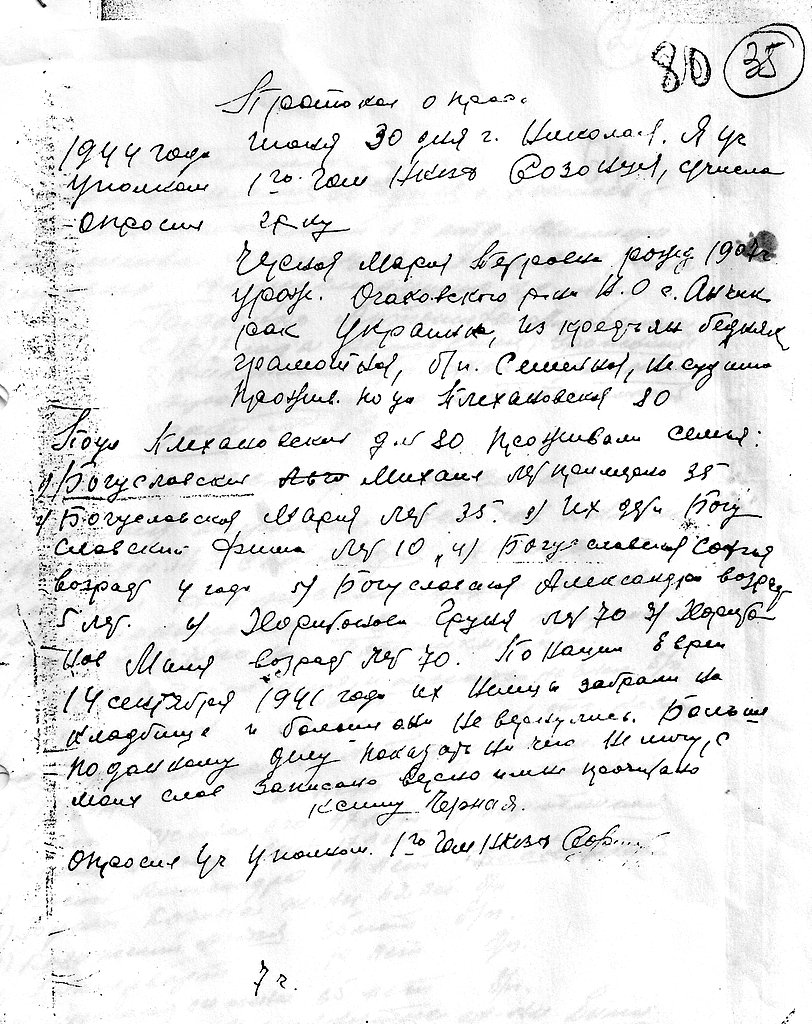 80 35
Протокол опроса
1944 года июня 30 дня г. Николаев. Я уч
уполном 1го. Гом НКГБ
Опросил гр-ку
Черная Мария Петровна рожд 1904г
урож. Очаковского р-на Н.О с. Анчек
рак Украины, из крестьян бедняк
грамотная, б/п. Семейная, не судима
прожив. по ул Плехановская 80
По ул Плехановская д. № 80 проживали семья:
1) Богуславский Михаил лет примерно 35
2) Богуславская Мария лет 35. 3) Их дети Богу
славский Фима лет 10, 4) Богуславская Софья
возраст 4 года 5) Богуславская Александра возраст
5 лет. 6) Харитонова Груня лет 70 7) Харито
нов Маня возраст лет 70. По нации Евреи
14 сентября 1941 года их немцы забрали на
кладбище и больше они не вернулись. Больше
по данному делу показать ни чего не могу, с
моих слов записано верно и мне прочитано
к сему Черная.
Опросил Уч Уполном. 1го Гом НКВД
7 г.